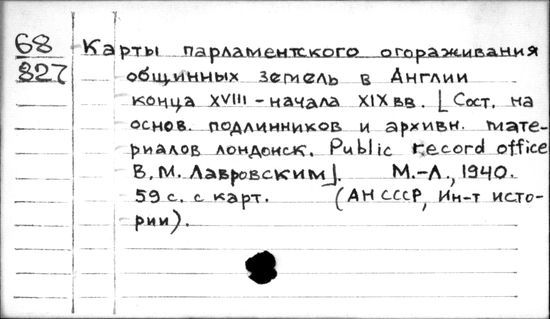 68 Карты парламентского огораживания
827 общинных земель в Англии
конца XVIII - начала XIX вв. [Сост. на
основ. подлинников и архивн. мате-
риалов лондонск. Public record office
В. М. Лавровским]. М.-Л., 1940.
59 с. с карт. (АН СССР, Ин-т исто-
рии).